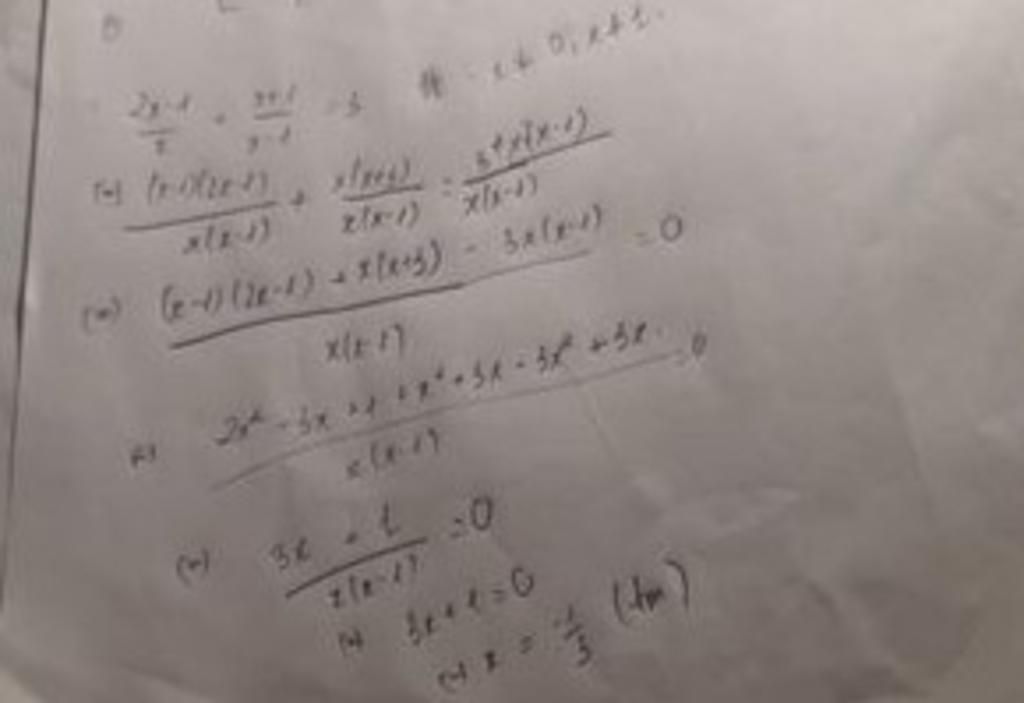 (x-1)(2x-1)/x(x-1) + x(x+3)/x(x-1) = 3x(x-1)/x(x-1)
(=) (x-1)(2x-1) + x(x+3) - 3x(x-1)/x(x-1) = 0
2x² - 3x + 1 + x² + 3x - 3x² + 3x/x(x-1) = 0
(=) 3x + 1/x(x-1) = 0
(=) 3x + 1 = 0
(=) x = -1/3 (tm)